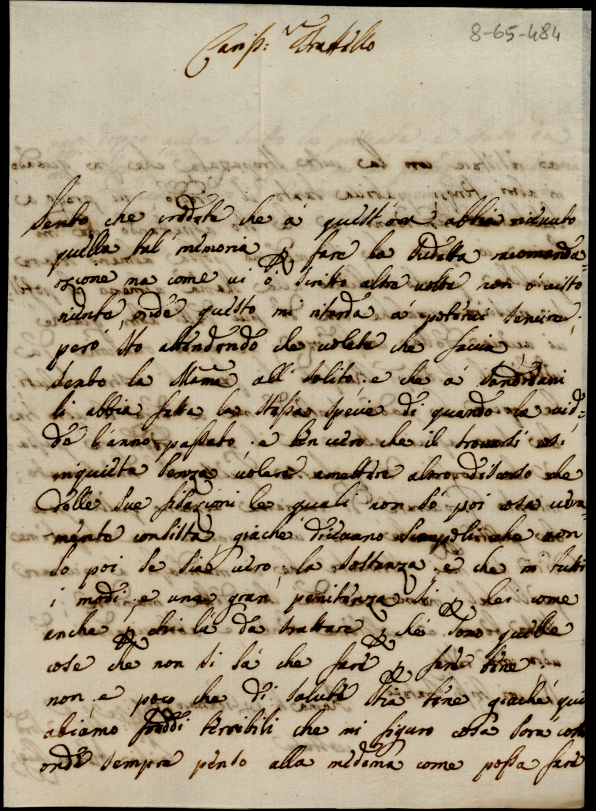 8-65-484
Cariss:mo Fratello
Sento che credete che a quest'ora abbia riceuto
quella tal memoria p fare la sudetta racomanda=
ozione ma come ui ò scritto altre uolte non ò uisto
niente, onde questo mi ritarda a poterui seruire,
però sto attendendo che uolete che facia
Sento la Mame all solito, e che a
li abbia fatta la stessa specie di quando la uid=
de l'anno passato, e ben uero che il trouarsi cosi
inquieta senza uolere ametere altro discorso che
delle sue fissazioni le quali non só poi cosa uera=
mente consista giache diceuano scrupoli che non
so poi se sia uero, la sostanza e che in tutti
i modi e una gran penitenza si p lei come
anche p chi la da trattare, p che sono quelle
cose che non si sà che fare p fare bene,
non e poco che di salute stia bene giache qui
abiamo freddi teribili che mi figuro cosa sara costi
onde sempre penso alla medema come possa fare